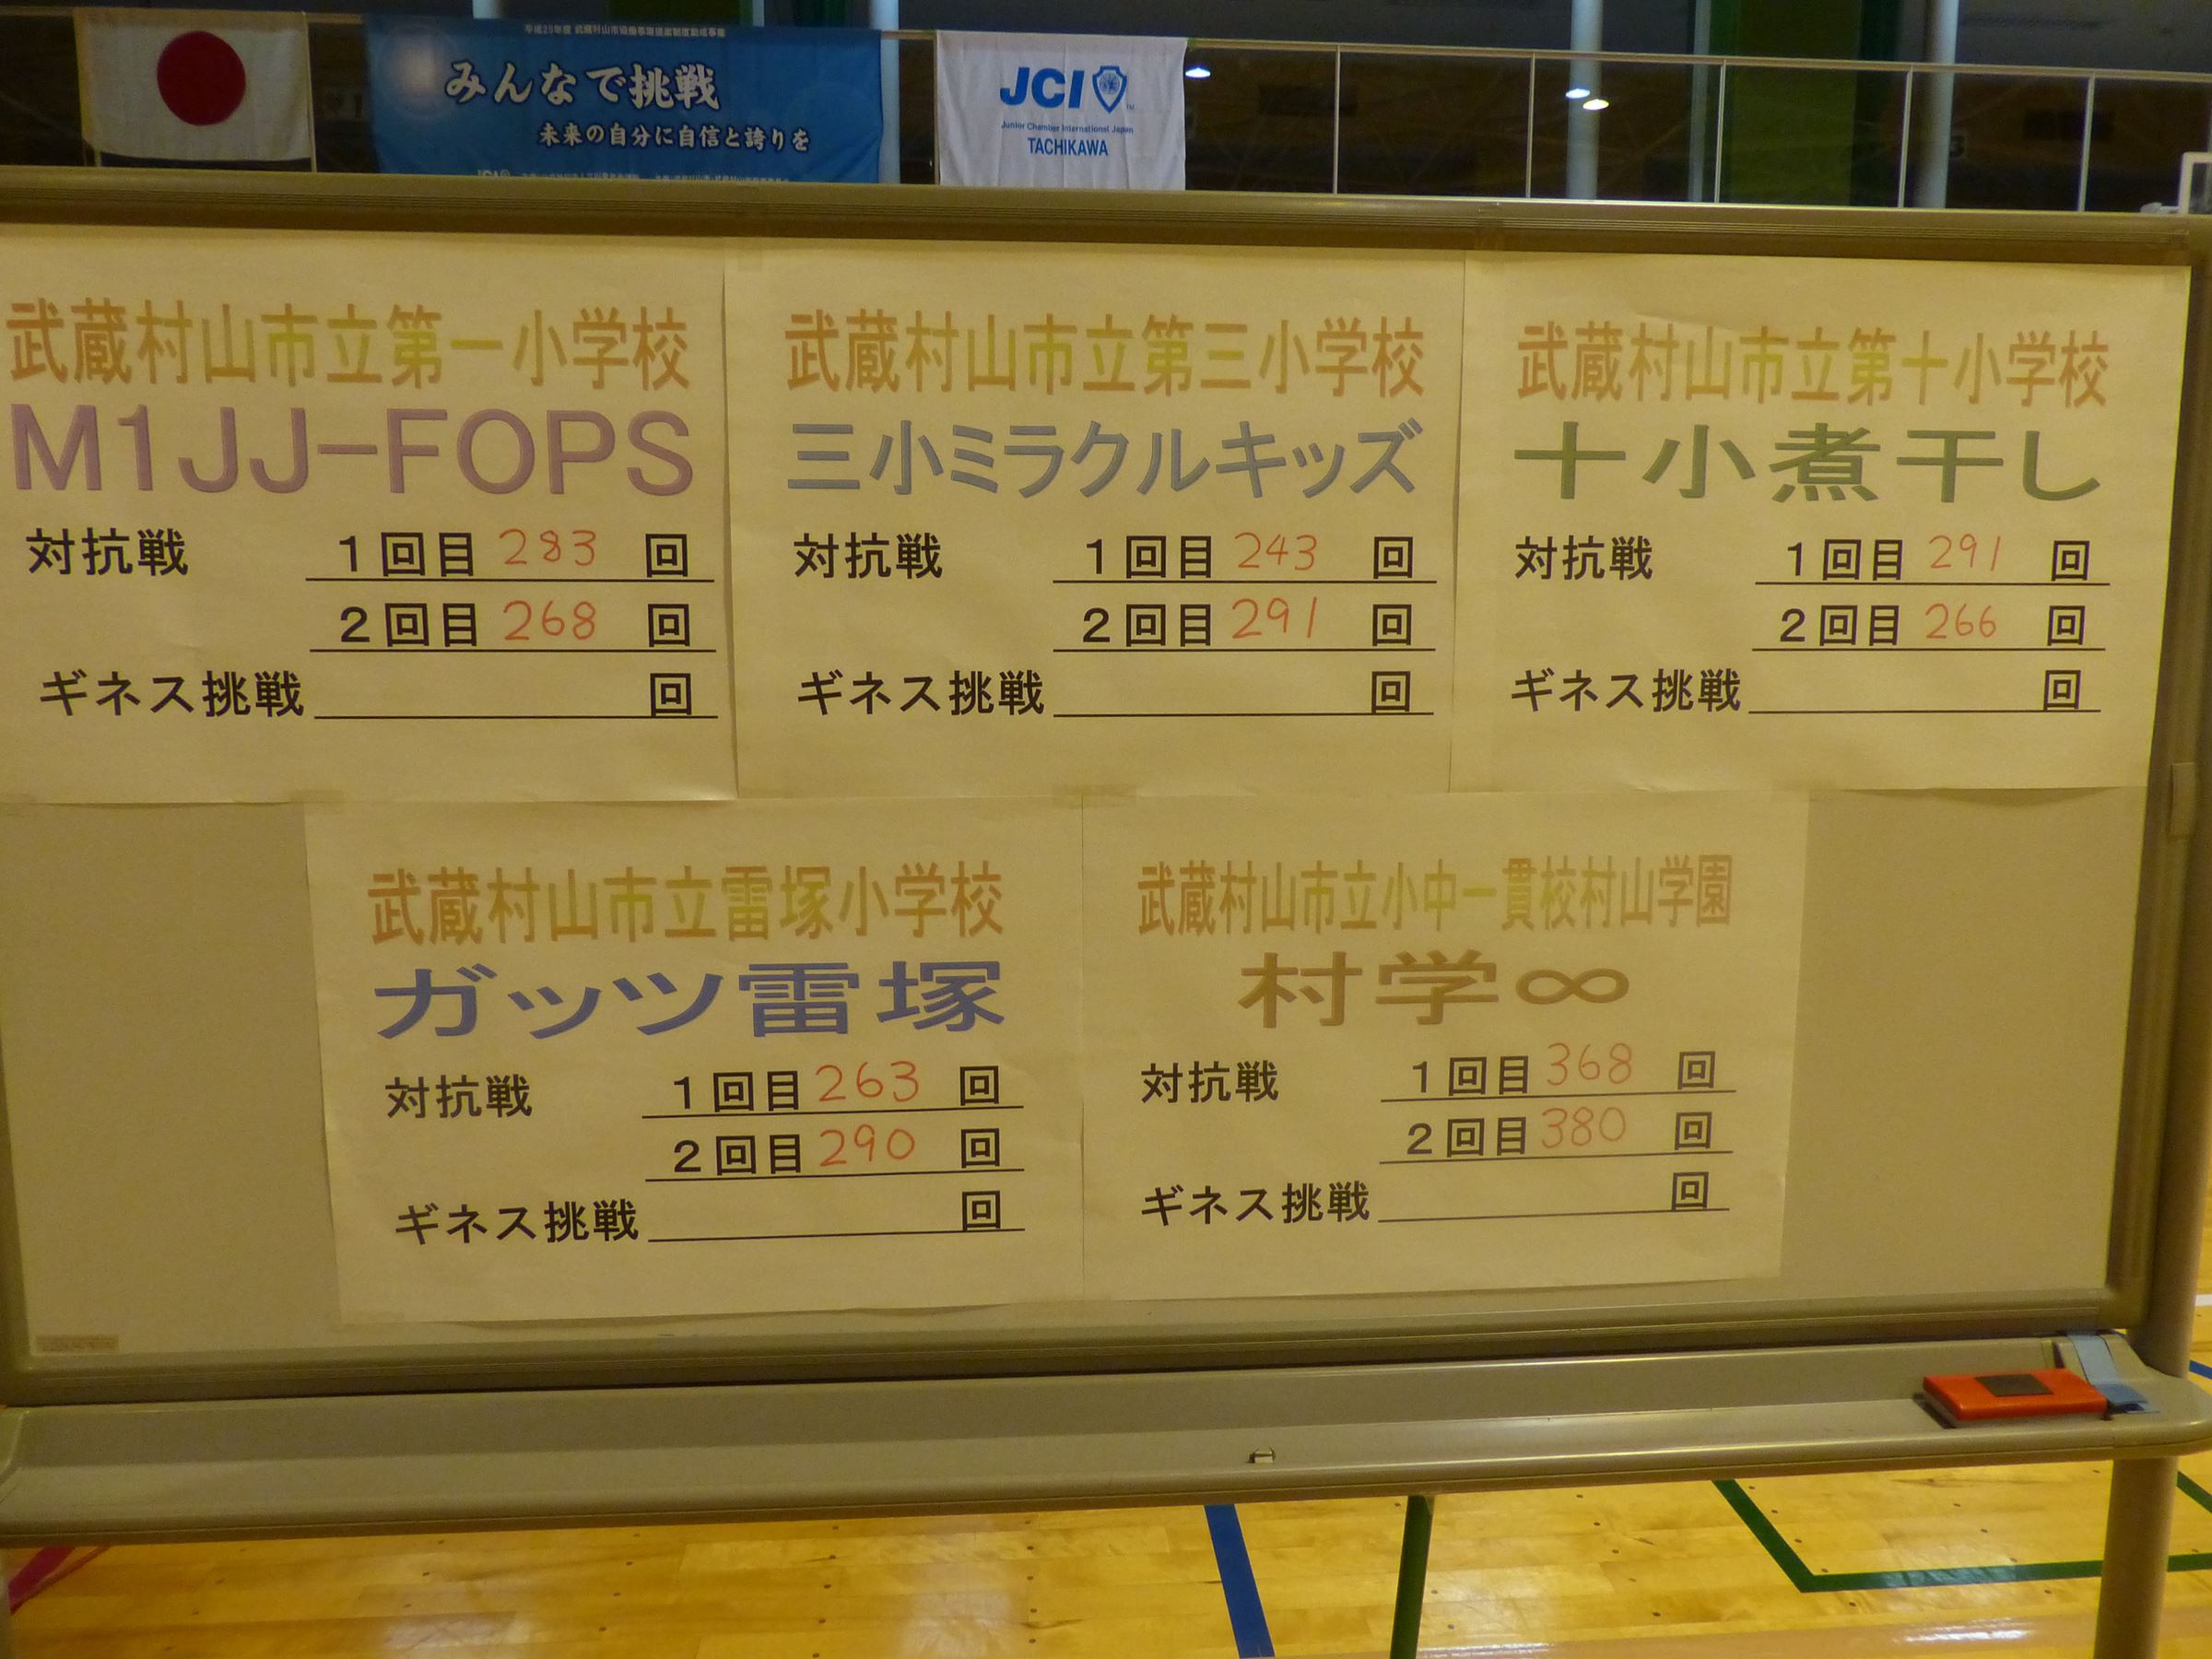 平成25年度 武蔵村山市協働事業提案制度助成事業
みんなで挑戦
未来の自分に自信と誇りを
JCI
Junior Chamber International Japan
TACHIKAWA
武蔵村山市立第一小学校
M1JJ-FOPS
対抗戦 1回目 283 回
2回目 268 回
ギネス挑戦 回
武蔵村山市立第三小学校
三小ミラクルキッズ
対抗戦 1回目 243 回
2回目 291 回
ギネス挑戦 回
武蔵村山市立第十小学校
十小煮干し
対抗戦 1回目 291 回
2回目 266 回
ギネス挑戦 回
武蔵村山市立雷塚小学校
ガッツ雷塚
対抗戦 1回目 263 回
2回目 290 回
ギネス挑戦 回
武蔵村山市立小中一貫校村山学園
村学∞
対抗戦 1回目 368 回
2回目 380 回
ギネス挑戦 回